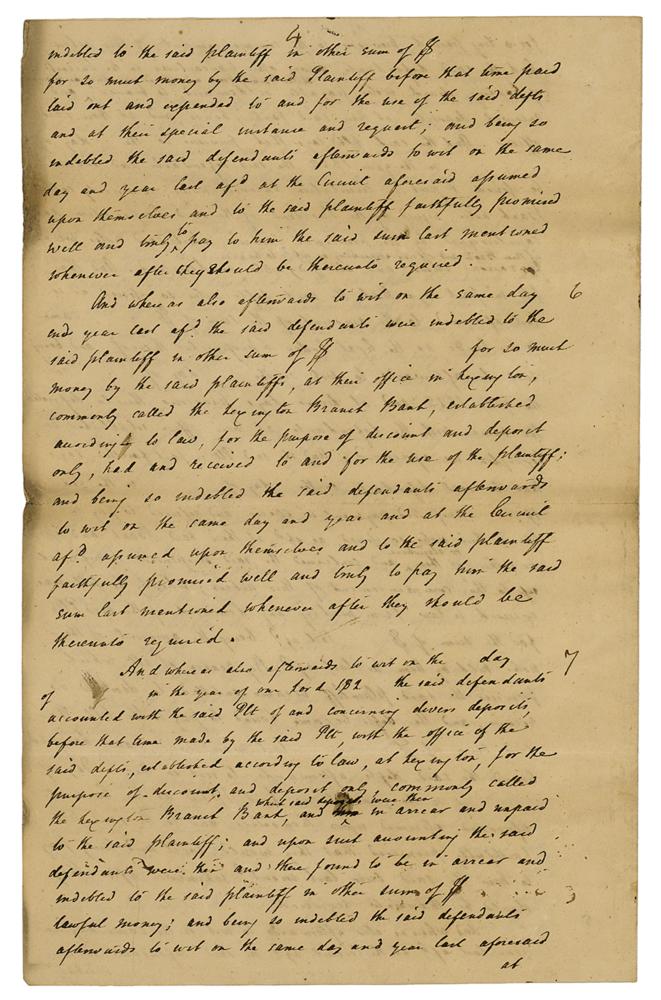 4
indebted to the said plaintiff in other sum of $
for so much money by the said Plaintiff before that time paid
laid out and expended to and for the use of the said defts
and at their special instance and request; and being so
indebted the said defendants afterwards to wit on the same
day and year last afd. at the Circuit aforesaid assumed
upon themselves and to the said plaintiff faithfully promised
well and truly to pay to him the said sum last mentioned
whenever after they should be thereunto required.
And where as also afterwards to wit on the same day 6
and year last afd. the said defendants were indebted to the
said plaintiff in other sum of $ for so much
money by the said plaintiffs, at their office in Lexington,
commonly called the Lexington Branch Bank, established
according to law, for the purpose of discount and deposit
only, had and received to and for the use of the plaintiff;
and being so indebted the said defendants afterwards
to wit on the same day and year and at the Circuit
afd. assumed upon themselves and to the said plaintiff
faithfully promised well and truly to pay him the said
sum last mentioned whenever after they should be
thereunto required.
And where as also afterwards to wit on the day 7
of in the year of our Lord 182 the said defendants
accounted with the said Plt of and concerning divers deposits,
before that time made by the said Plt, with the office of the
said defts, established according to law, at Lexington, for the
purpose of discount, and deposit only, commonly called
the Lexington Branch Bank, and which said deposits were then in arrear and unpaid
to the said plaintiff; and upon such accounting the said
defendants were then and there found to be in arrear and
indebted to the said plaintiff in other sum of $
lawful money; and being so indebted the said defendants
afterwards to wit on the same day and year last aforesaid
at